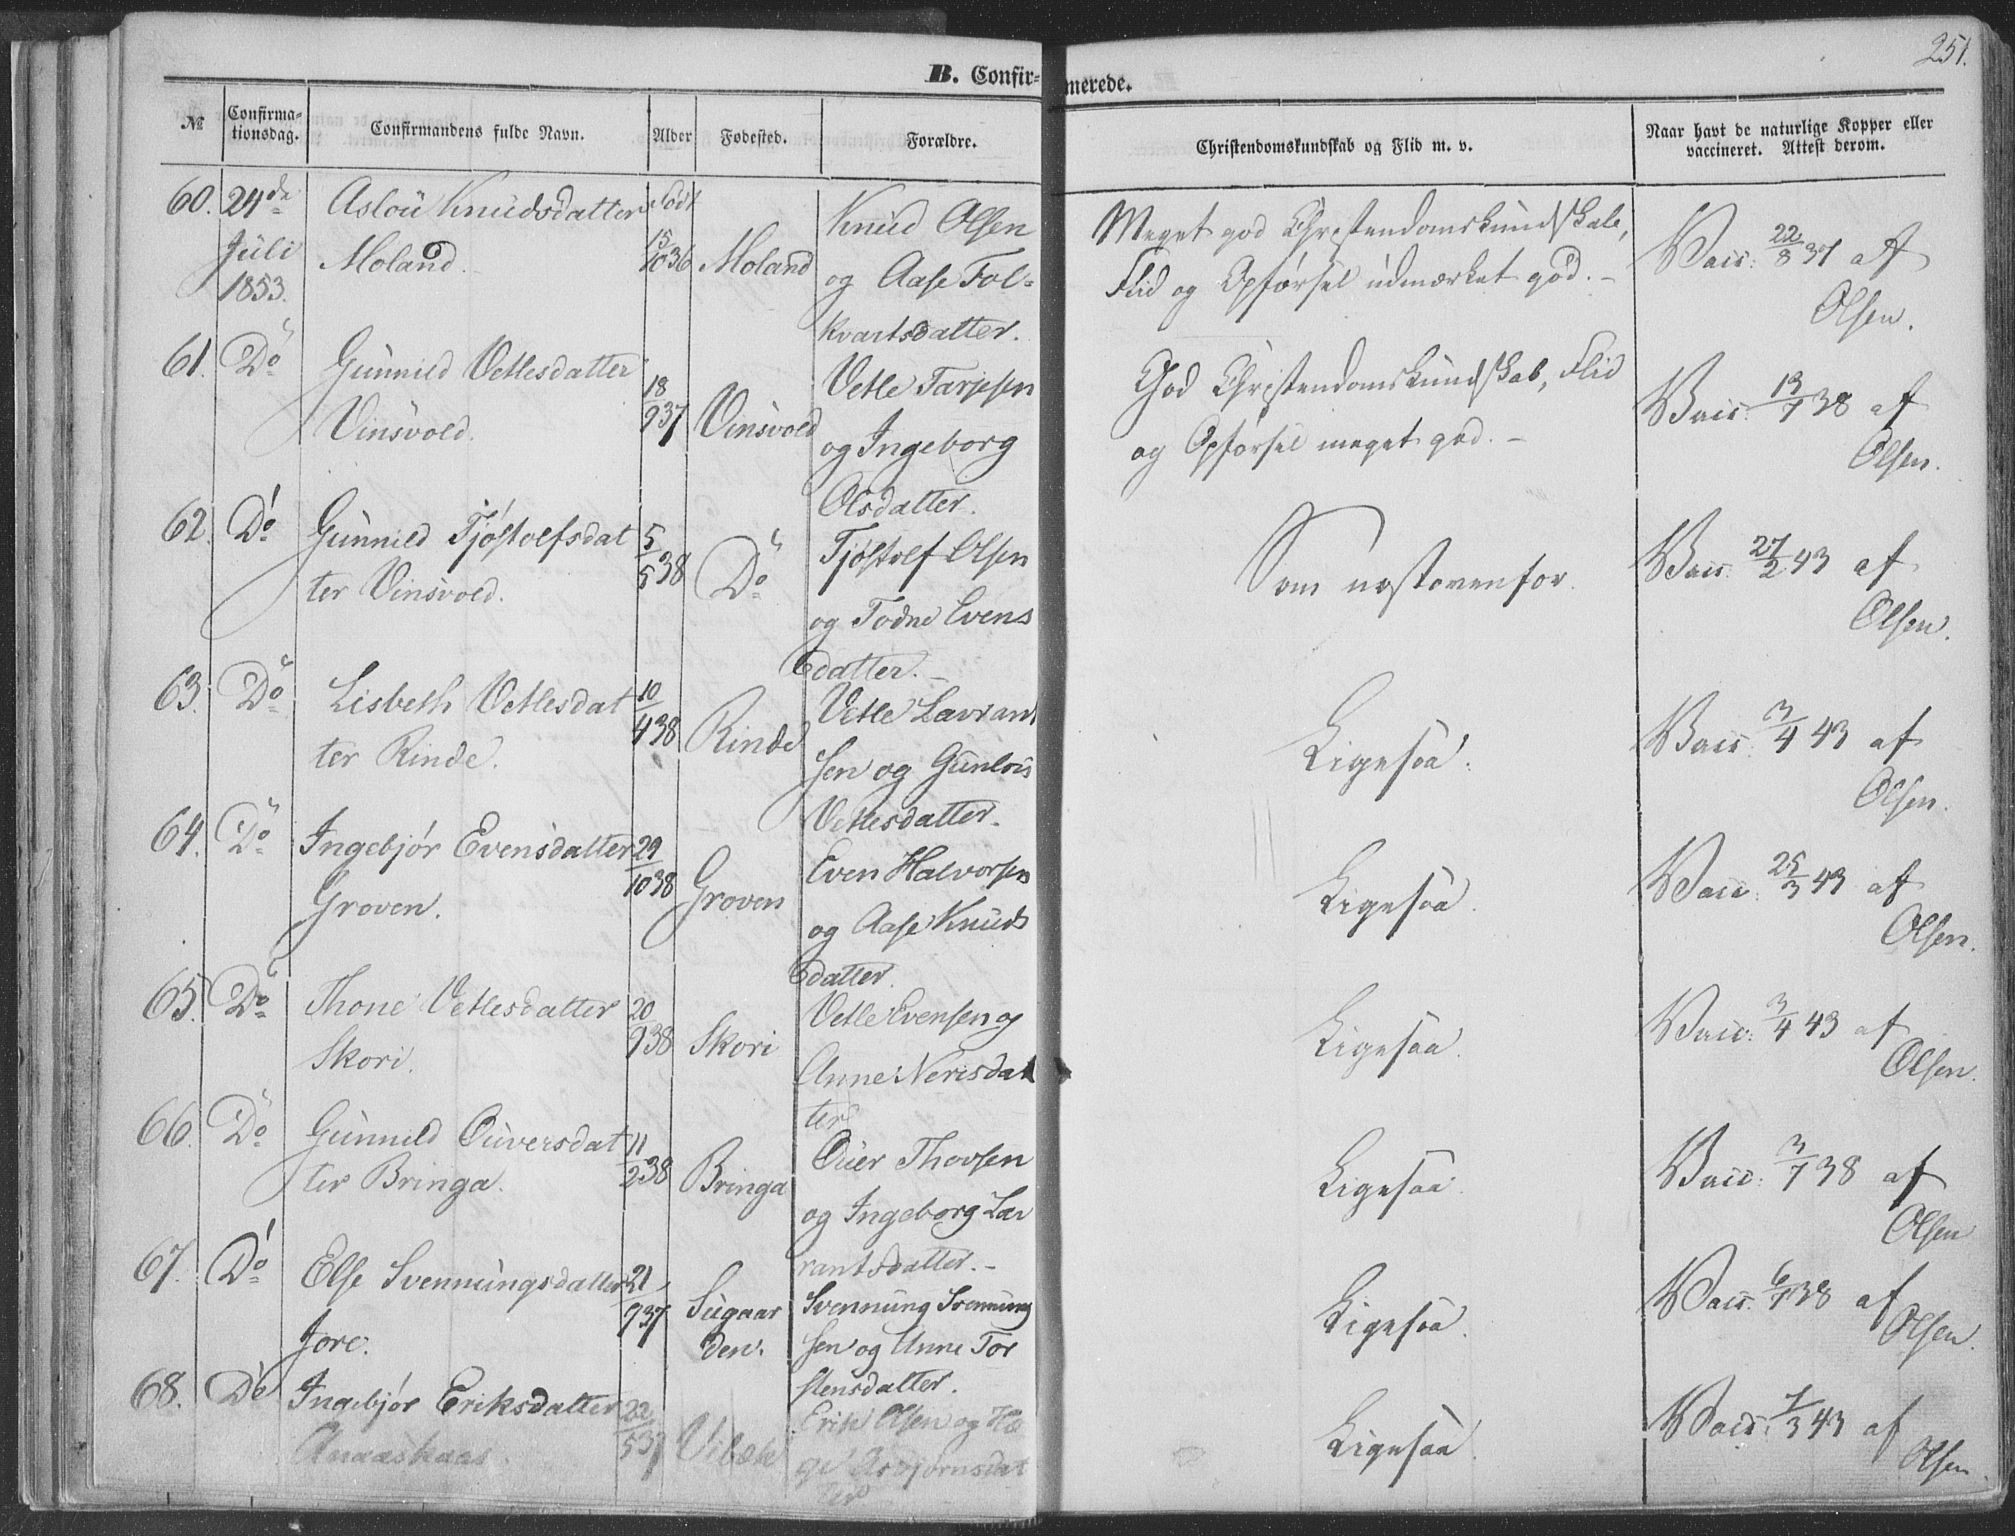 251.
B. Confirmerede.
№ Confirmationsdag. Confirmandens fulde Navn. Alder Fødested. Forældre. Christendomskundskab og Flid m. v. Naar havt de naturlige Kopper eller vaccineret. Attest derom.
60. 24de Aslou Knudsdatter Født Knud Olsen Meget god Christendomskundskab,
Juli Moland. 15/10 36 Moland og Aase Fol= Flid og Opførsel udmærket god. – Vacc. 22/8 37 af
1853. kvartsdatter. Olsen.
61. Do Gunnild Vetlesdatter 18/9 37 Vinsvold Vetle Tarjesen God Christendomskundskab, Flid Vacc. 13/7 38 af
Vinsvold. og Ingeborg og Opførsel meget god. – Olsen.
Olsdatter.
62. Do Gunnild Tjøstolfsdat 5/5 38 Do Tjøstolf Olsen Som næstovenfor. Vacc. 27/2 43 af
ter Vinsvold. og Todne Evens Olsen.
datter. –
63. Do Lisbeth Vetlesdat 10/4 38 Rinde Vetle Lavrant Ligesaa. Vacc. 3/4 43 af
ter Rinde. sen og Gunlou Olsen.
Vetlesdatter.
64. Do Ingebjør Evensdatter 29/10 38 Groven Even Halvorsen Ligesaa. Vacc. 25/3 43 af
Groven. og Aase Knuds Olsen.
datter.
65. Do Thone Vetlesdatter 20/9 38 Skori Vetle Evensen og Ligesaa. Vacc. 3/4 43 af
Skori. Anne Nerisdat Olsen.
ter
66. Do Gunnild Ouversdat 11/2 38 Bringa Ouer Thovsen Ligesaa. Vacc. 3/7 38 af
ter Bringa. og Ingeborg Lav Olsen
rantsdatter. –
67. Do Else Svennungsdatter 21/9 37 Sugaar Svennung Svennung Ligesaa. Vacc. 6/7 38 af
Jore. den. sen og Anne Tor Olsen.
stensdatter.
68. Do Ingebjør Eriksdatter 22/5 37 Vibæk Erik Olsen og Hæ Ligesaa. Vacc. 1/3 43 af
ge Asbjørnsdat Olsen.
ter